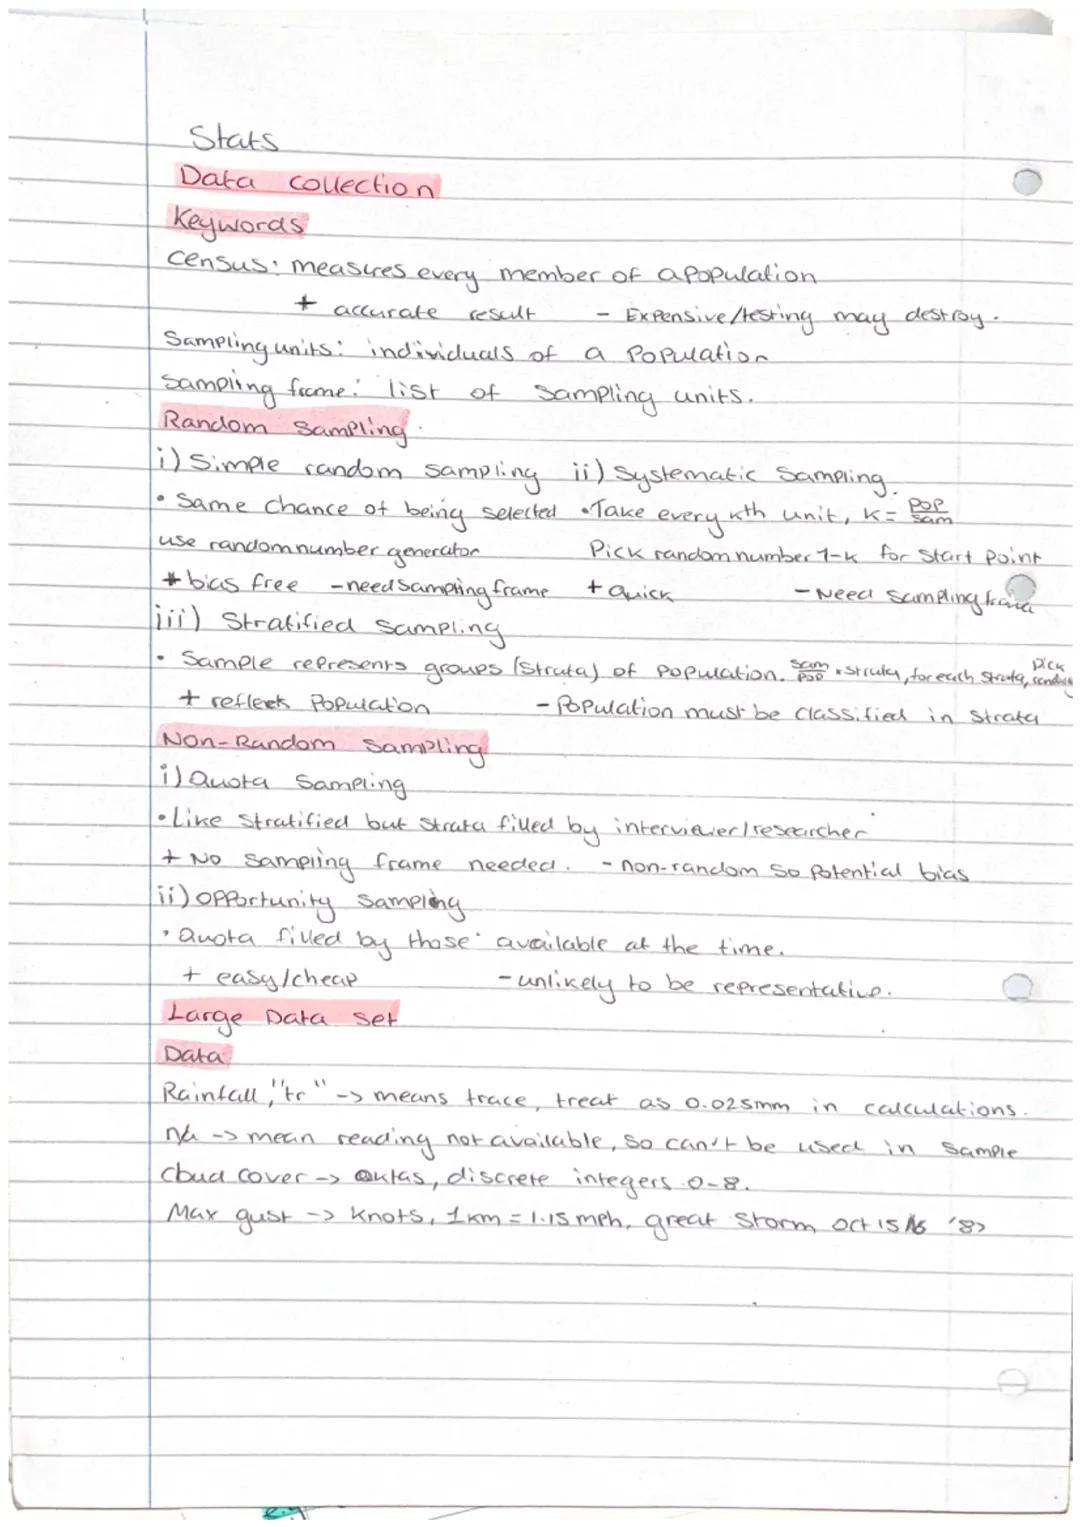 Stats
Data collection
Keywords
Census: measures every member of a population
+ accurate result - Expensive/testing may destroy.
Sampling units: individuals of a population
Sampling frame: list of sampling units.
Random Sampling
i) Simple random sampling ii) Systematic Sampling.
• Same chance of being selected • Take every kth unit, K = Pop/Sam
use random number generator Pick random number 1-k for start point
+ bias free - need sampling frame + Quick - Need sampling frame
iii) Stratified Sampling
• Sample represents groups (Strata) of population. Sam/Pop × strata, for each strata, pick
+ reflects Population - Population must be classified in strata
Non-Random Sampling
i) Quota Sampling
• Like stratified but strata filled by interviewer/researcher
+ No sampling frame needed. - non-random so potential bias
ii) Opportunity Sampling
• Quota filled by those available at the time.
+ easy/cheap - unlikely to be representative.
Large Data Set
Data
Rainfall, "tr" -> means trace, treat as 0.025mm in calculations.
n/a -> mean reading not available, so can't be used in sample
Cloud cover -> Oktas, discrete integers 0-8.
Max gust -> Knots, 1km = 1.15mph, great Storm Oct 15/16 '87